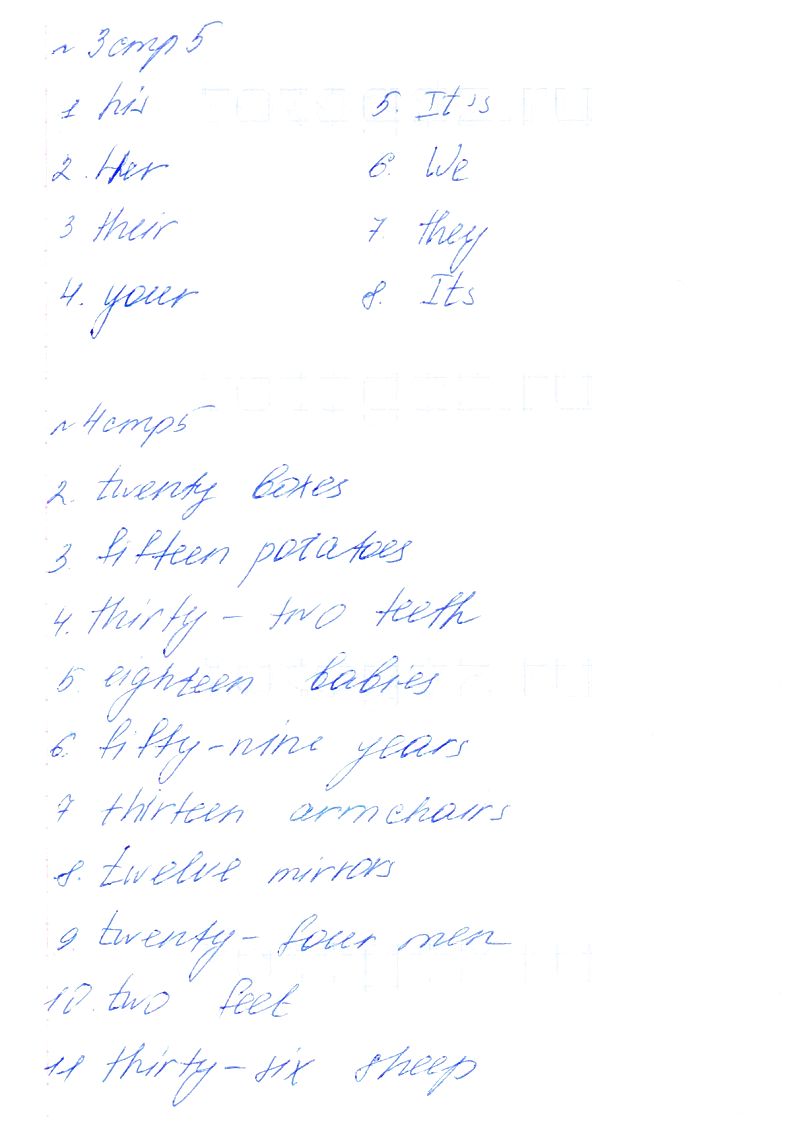 ~ 3 стр 5
1 his
2. Her
3 their
4. your
5. It's
6. We
7. they
8. Its
~ 4 стр 5
2. twenty boxes
3 fifteen potatoes
4. thirty - two teeth
5 eighteen babies
6. fifty-nine years
7 thirteen armchairs
8. twelve mirrors
9 twenty- four men
10. two feet
11 thirty-six sheep